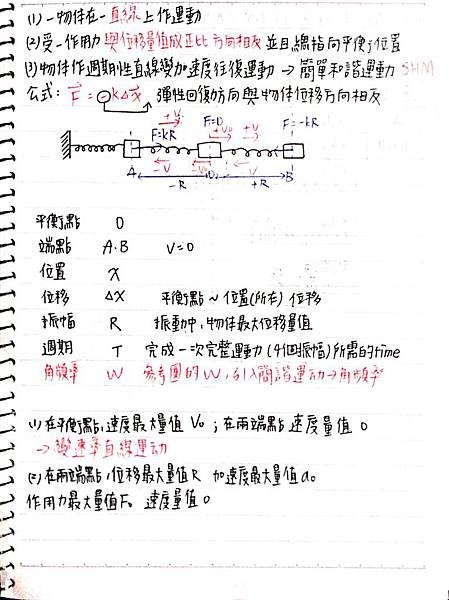 (1) 一物体在一直線上作運動
(2) 受一作用力與位移量值成正比 方向相反 並且總指向平衡位置
(3) 物体作週期性直線變加速度往復運動 → 簡單和諧運動 SHM
公式: F = -kΔx 彈性回復方向與物体位移方向相反
+V +V₀ +V
F=kR F=0 F=-kR
-V -V₀ -V
A O B
-R +R
平衡點 O
端點 A.B V=0
位置 x
位移 Δx 平衡點~位置(所在) 位移
振幅 R 振動中,物体最大位移量值
週期 T 完成一次完整運動(4個振幅)所需的time
角頻率 W 參考圓的W,引入簡諧運動→角頻率
(1) 在平衡點,速度最大量值 V₀ ; 在兩端點 速度量值 0
→ 變速率直線運動
(2) 在兩端點,位移最大量值R 加速度最大量值a₀
作用力最大量值F₀ 速度量值0